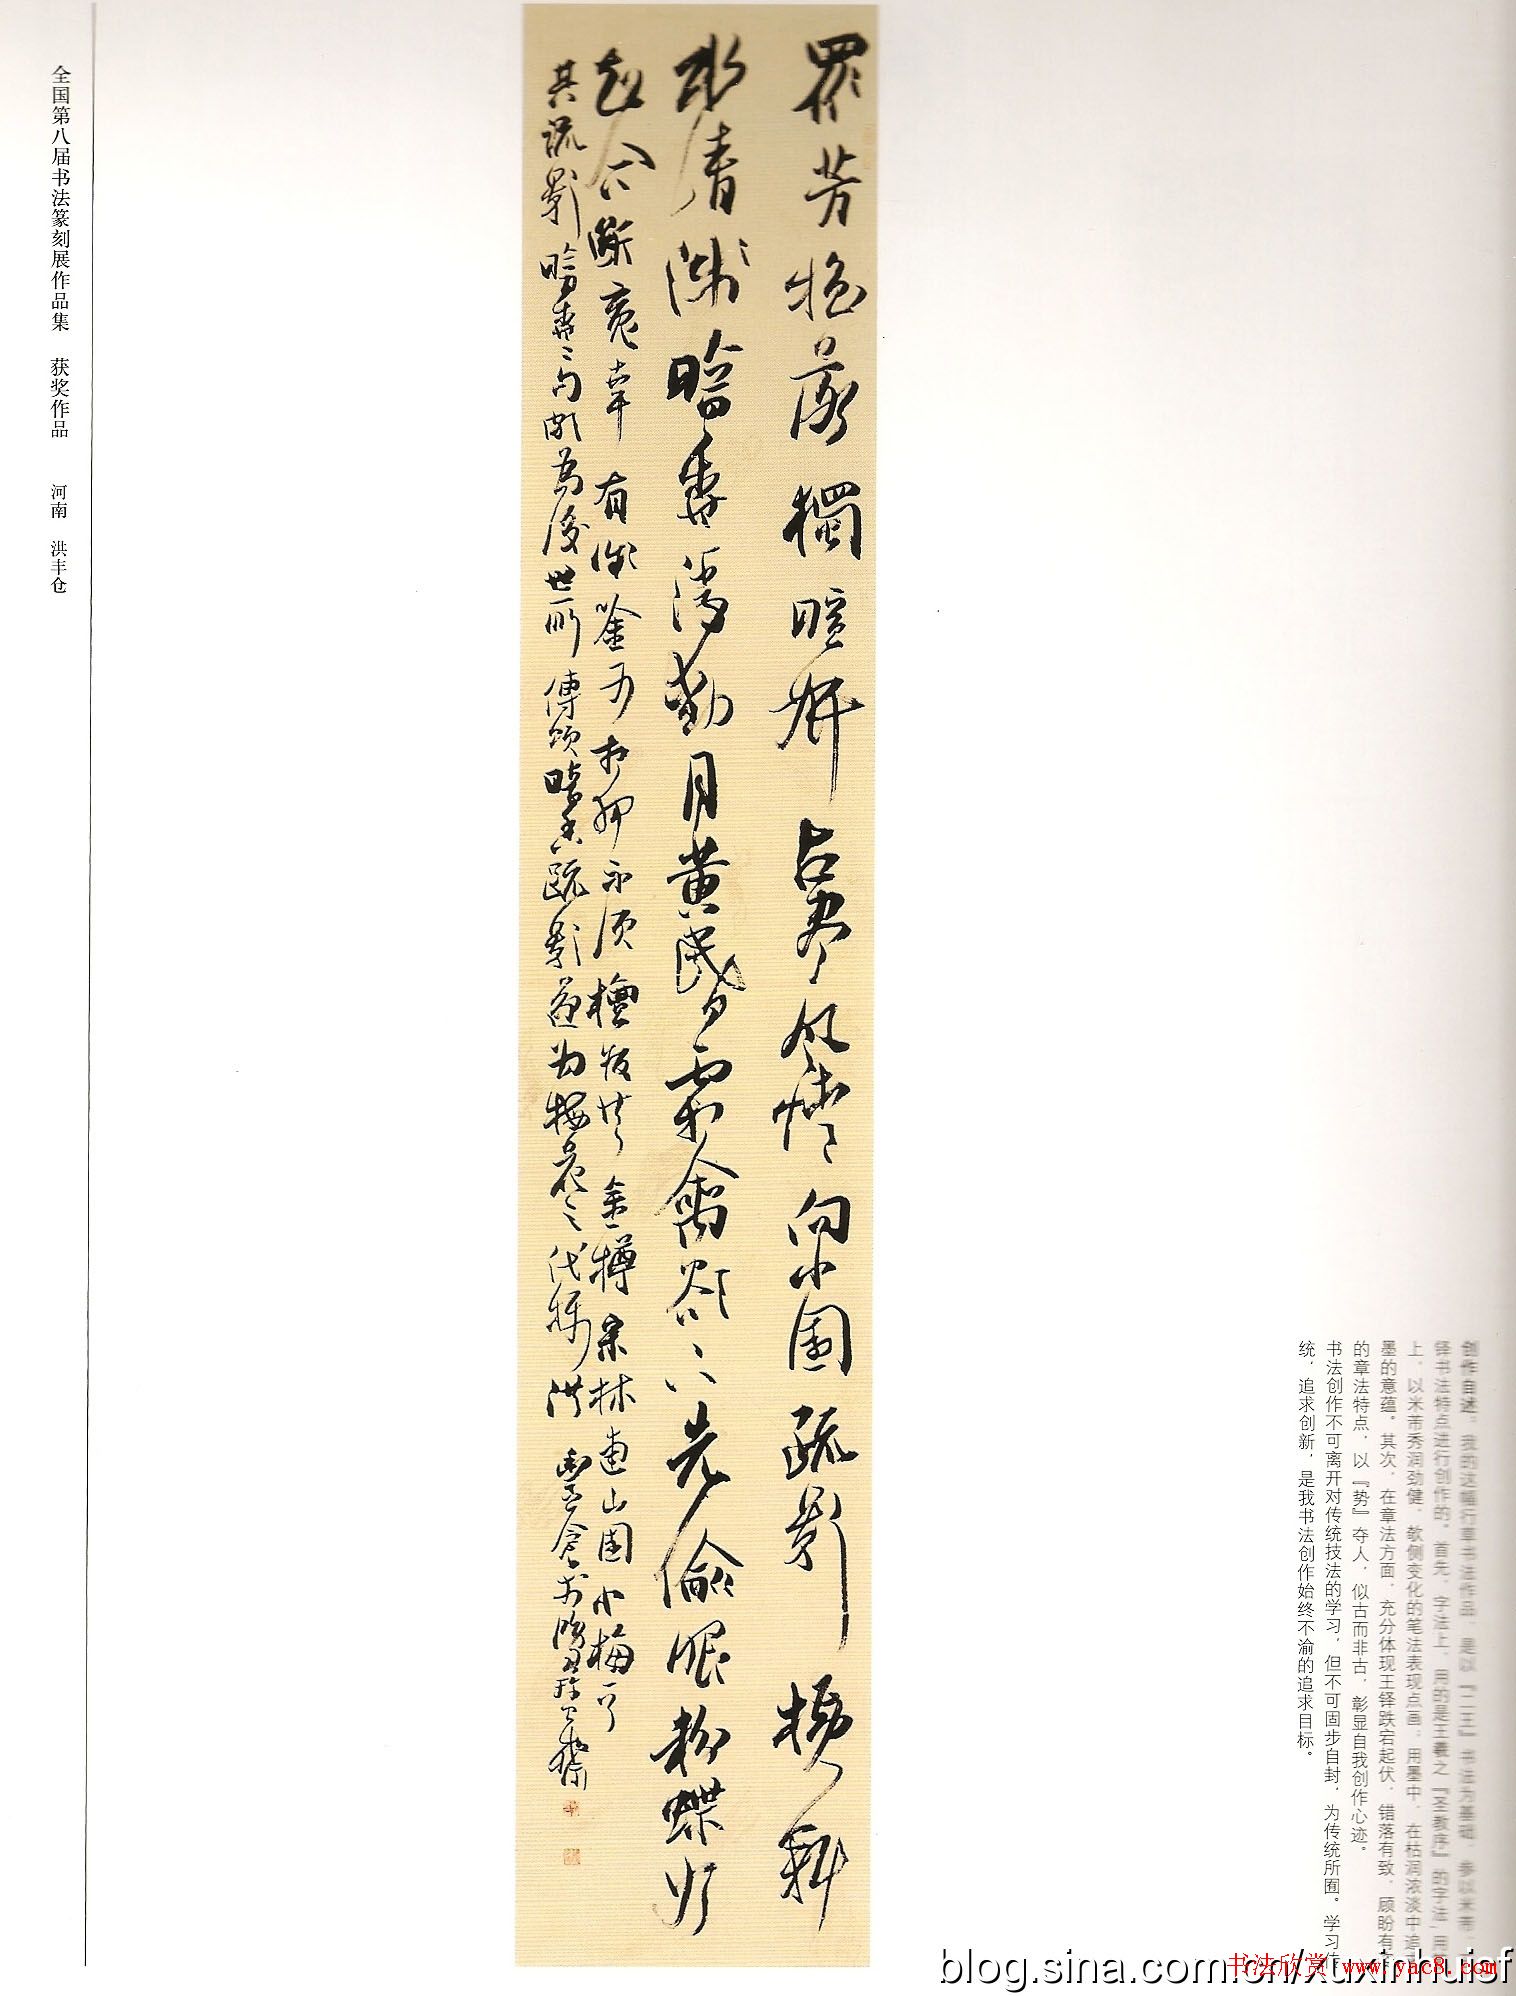 创作自述：我的这幅行草书法作品，是以『二王』书法为基础，参以米芾、
铎书法特点进行创作的。首先，字法上，用的是王羲之『圣教序』的字法，用
上，以米芾秀润劲健、欹侧变化的笔法表现点画；用墨中，在枯润浓淡中追
墨的意蕴。其次，在章法方面，充分体现王铎跌宕起伏、错落有致、顾盼有
的章法特点，以『势』夺人，似古而非古，彰显自我创作心迹。
书法创作不可离开对传统技法的学习，但不可固步自封，为传统所囿。学习传
统，追求创新，是我书法创作始终不渝的追求目标。
眾芳搖落獨暄妍占盡風情向小園疏影橫斜
水清淺暗香浮動月黃昏霜禽欲下先偷眼粉蝶如
知合斷魂幸有微吟可相狎不須檀板共金樽宋林逋山園小梅一首
其疏影暗香二句頗為後世所傳頌暗香疏影遂為梅花之代稱洪豐倉於齋
全国第八届书法篆刻展作品集 获奖作品 河南 洪丰仓
blog.sina.com.cn/xuxinhuisf
书法欣赏 www.yac8.com